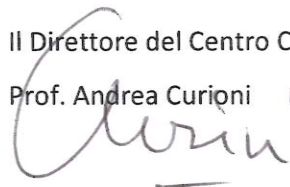 Il Direttore del Centro C
Prof. Andrea Curioni